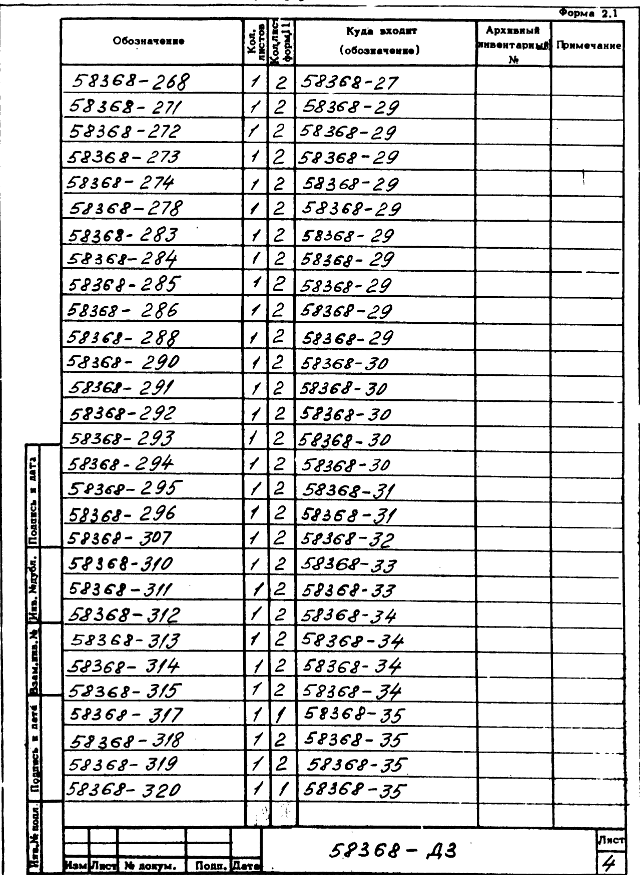 Форма 2.1
Обозначение Кол. листов Кол.лист. форм.11 Куда входит (обозначение) Архивный инвентарный № Примечание
58368-268 1 2 58368-27
58368-271 1 2 58368-29
58368-272 1 2 58368-29
58368-273 1 2 58368-29
58368-274 1 2 58368-29
58368-278 1 2 58368-29
58368-283 1 2 58368-29
58368-284 1 2 58368-29
58368-285 1 2 58368-29
58368-286 1 2 58368-29
58368-288 1 2 58368-29
58368-290 1 2 58368-30
58368-291 1 2 58368-30
58368-292 1 2 58368-30
58368-293 1 2 58368-30
58368-294 1 2 58368-30
58368-295 1 2 58368-31
58368-296 1 2 58368-31
58368-307 1 2 58368-32
58368-310 1 2 58368-33
58368-311 1 2 58368-33
58368-312 1 2 58368-34
58368-313 1 2 58368-34
58368-314 1 2 58368-34
58368-315 1 2 58368-34
58368-317 1 1 58368-35
58368-318 1 2 58368-35
58368-319 1 2 58368-35
58368-320 1 1 58368-35
Подпись и дата
Инв. №дубл.
Взам.инв.№
Подпись и дата
Инв.№ подл
Изм Лист № докум. Подп. Дата
58368-Д3
Лист
4